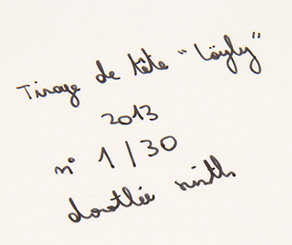 Tirage de tête "Löyly"
2013
n° 1/30
dorothée smith